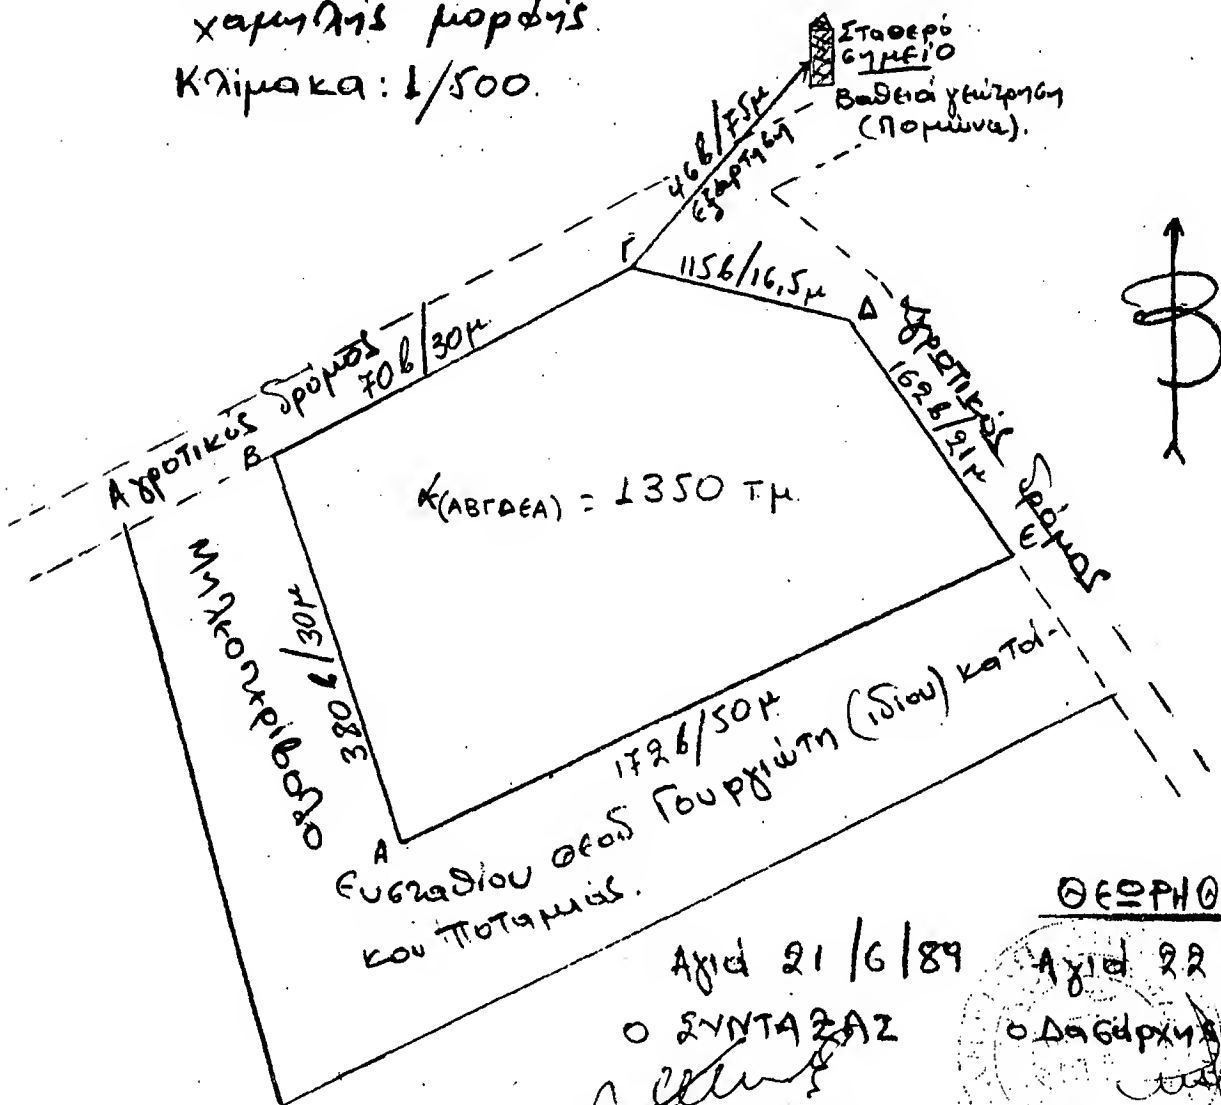 χαμηλής μορφής
Κλίμακα: 1/500.
Σταθερό
σημείο
Βαθειά γεώτρηση
(Πομώνα).
46β/75μ
εξάρτηση
Γ
115β/16,5μ
Δ
Αγροτικός δρόμος
70β/30μ.
Β
Αγροτικός δρόμος
162β/21μ
Ε
(ΑΒΓΔΕΑ) = 1350 τμ.
Μηλεοπερίβολο
380β/30μ
Α
172β/50μ
Ευσταθίου Θεοδ Γουργιώτη (ιδίου) κατοί-
κου Ποταμιάς.
ΘΕΩΡΗΘ
Αγιά 21/6/89
Αγιά 22
Ο ΣΥΝΤΑΞΑΣ
ο Δασάρχης
Β